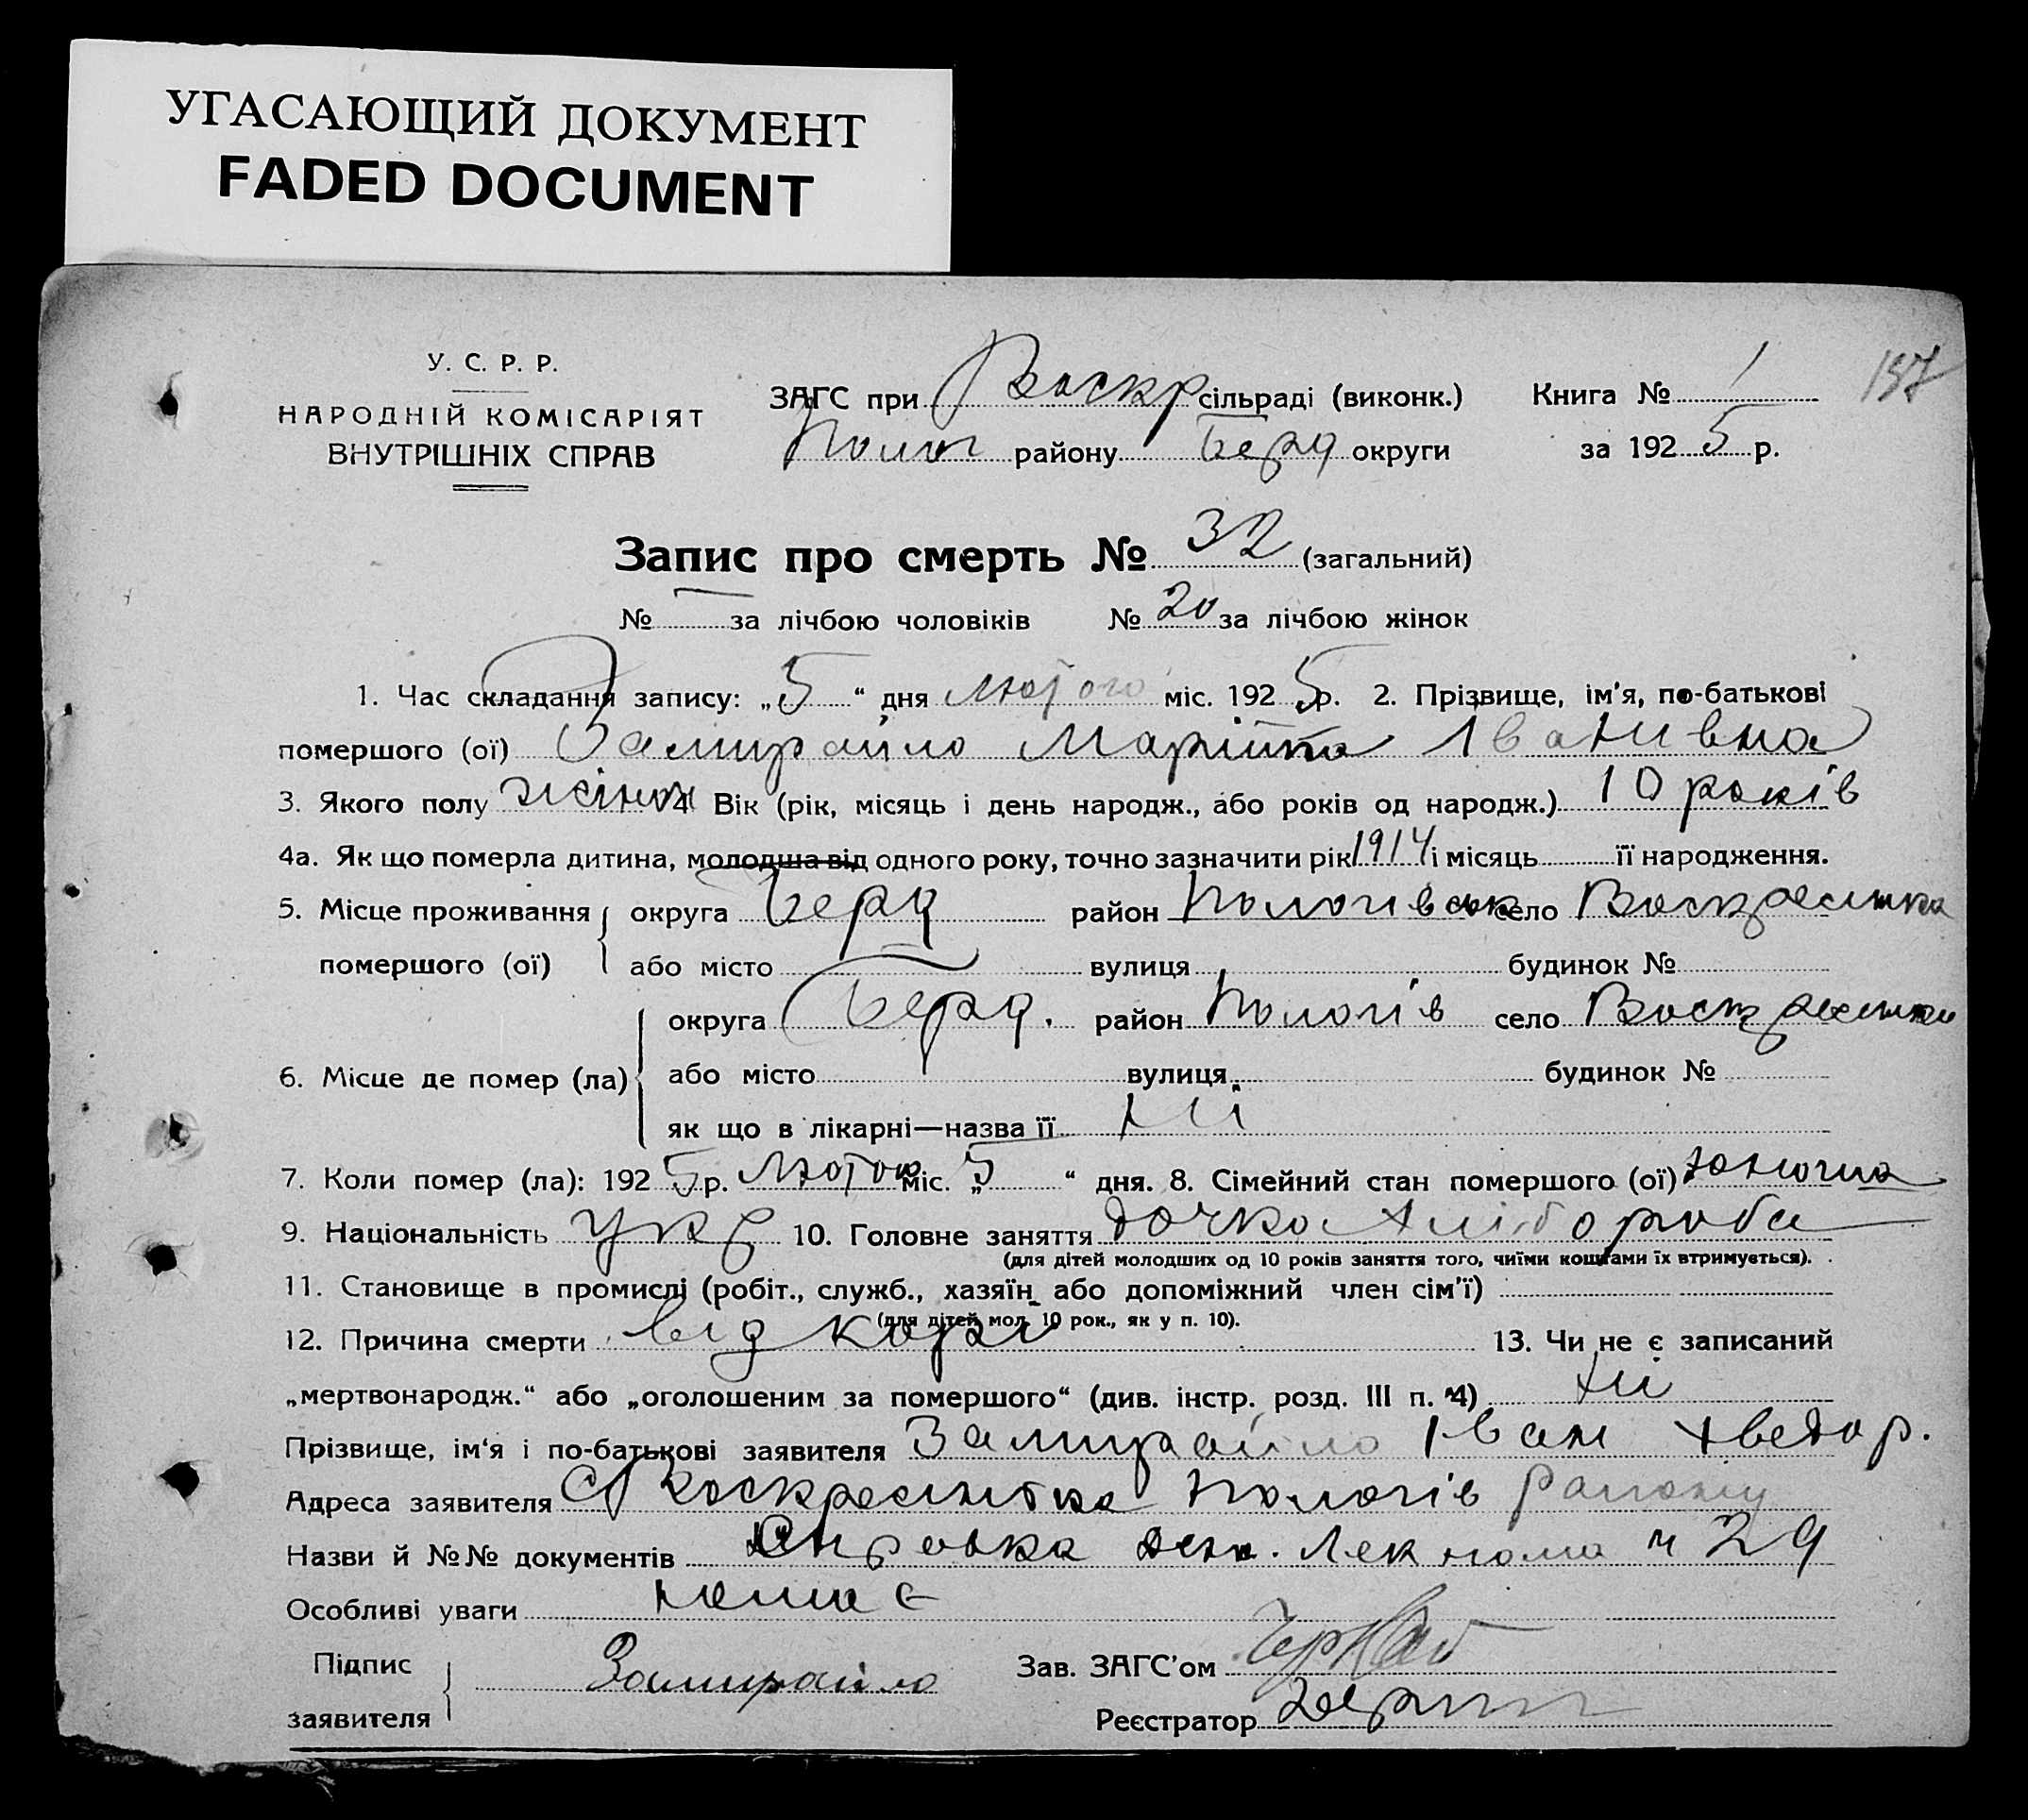 УГАСАЮЩИЙ ДОКУМЕНТ
FADED DOCUMENT
У. С. Р. Р.
НАРОДНІЙ КОМІСАРІЯТ
ВНУТРІШНІХ СПРАВ
ЗАГС при Воскр сільраді (виконк.)
Полог району Берд округи
Книга № 1
за 1925 р.
157
Запис про смерть № 32 (загальний)
№ — за лічбою чоловіків № 20 за лічбою жінок
1. Час складання запису: „5“ дня Лютого міс. 1925 р. 2. Прізвище, ім'я, по-батькові
помершого (ої) Замирайло Марійка Іванивна
3. Якого полу жіноч 4. Вік (рік, місяць і день народж., або років од народж.) 10 років
4а. Як що померла дитина, молодша від одного року, точно зазначити рік 1914 і місяць її народження.
5. Місце проживання помершого (ої) округа Берд район Пологівськ село Воскресенка
або місто вулиця будинок №
6. Місце де помер (ла) округа Берд. район Пологів село Воскресенки
або місто вулиця будинок №
як що в лікарні—назва її Ні
7. Коли помер (ла): 1925 р. Лютого міс. „5“ дня. 8. Сімейний стан помершого (ої)
9. Національність Укр 10. Головне заняття дочка хлібороба
(для дітей молодших од 10 років заняття того, чиїми коштами їх втримується).
11. Становище в промислі (робіт., служб., хазяїн або допоміжний член сім'ї)
(для дітей мол. 10 рок., як у п. 10).
12. Причина смерти від кори 13. Чи не є записаний
„мертвонародж.“ або „оголошеним за помершого“ (див. інстр. розд. III п. 4) Ні
Прізвище, ім'я і по-батькові заявителя Замирайло Іван Хведор.
Адреса заявителя с Воскресенка Пологів Району
Назви й №№ документів Справка Лекпома № 29
Особливі уваги немає
Підпис заявителя Замирайло
Зав. ЗАГС'ом
Реєстратор